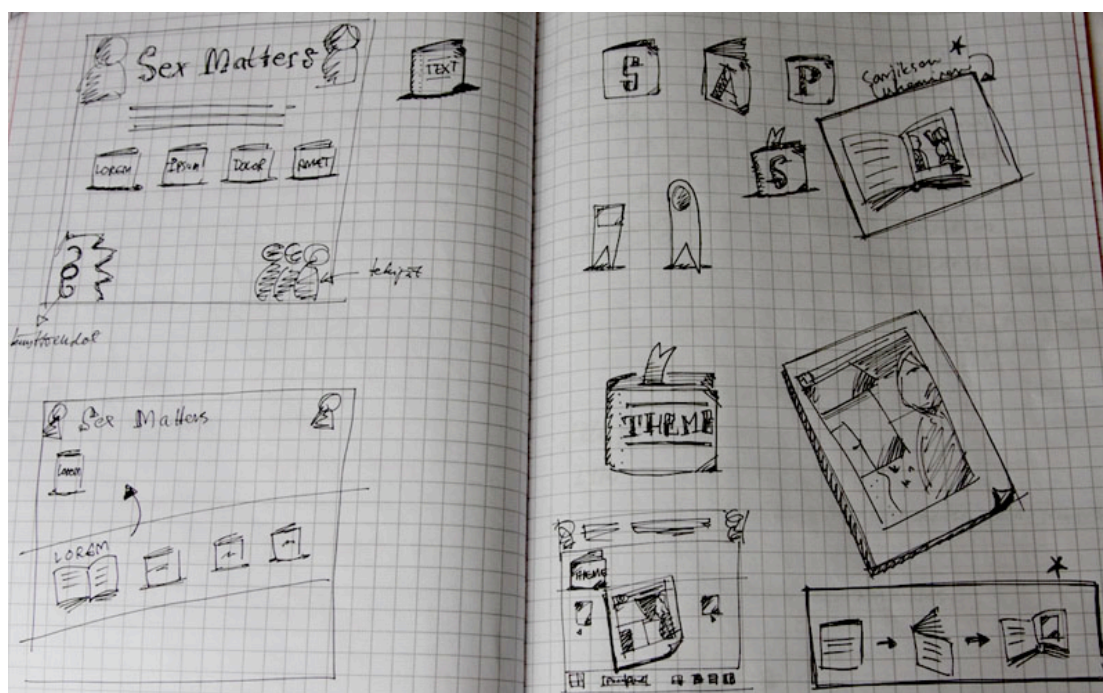 Sex Matters
TEXT
LOREM IPSUM DOLOR AMET
tekijät
Sex Matters
Lorem
LOREM
S A P
S
Sarjiksen
THEME
THEME